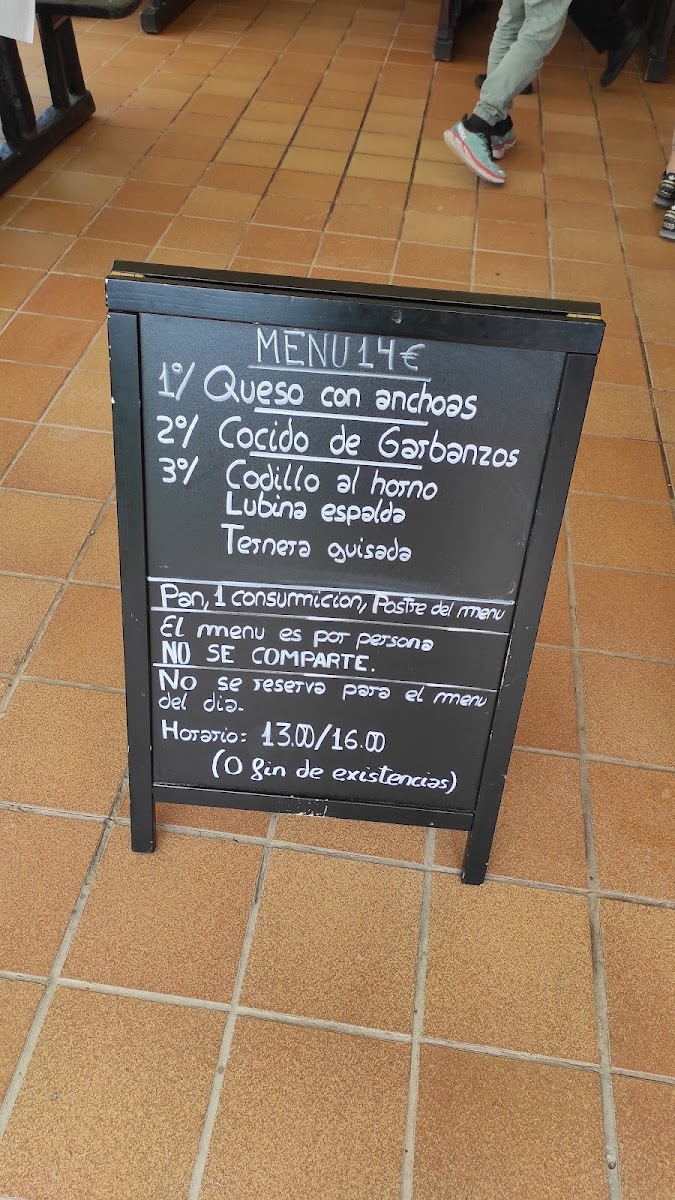 MENU 14€
1º/ Queso con anchoas
2º/ Cocido de Garbanzos
3º/ Codillo al horno
Lubina espalda
Ternera guisada
Pan, 1 consumicion, Postre del menu
El menu es por persona
NO SE COMPARTE.
No se reserva para el menu
del dia.
Horario: 13.00/16.00
(O fin de existencias)